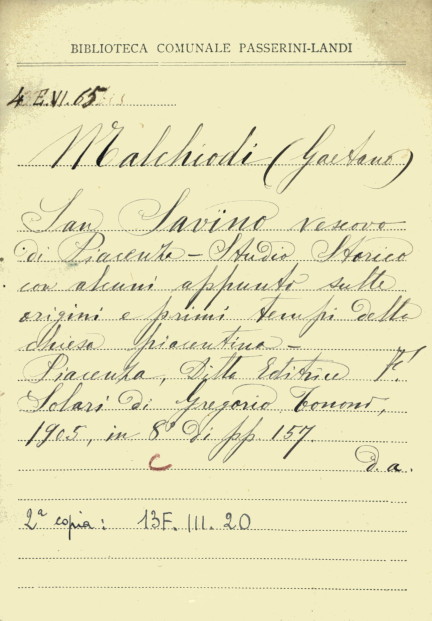 BIBLIOTECA COMUNALE PASSERINI-LANDI
4 E.VI.65
Malchiodi (Gaetano)
San Savino vescovo
di Piacenza - Studio Storico
con alcuni appunto sulle
origini e primi tempi della
chiesa piacentina -
Piacenza, Ditta Editrice F.
Solari di Gregorio Tononi,
1905, in 8° di pp 157.
C
d. a.
2ª copia: 13F. III. 20